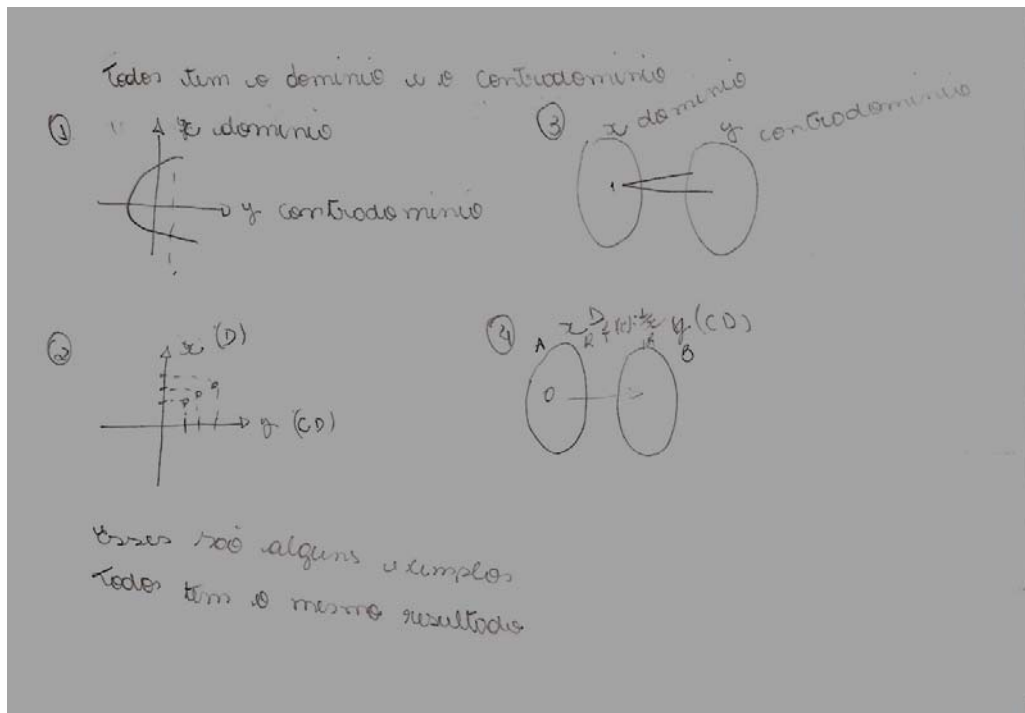 Todos tem o dominio e o contradominio
① x dominio
y contradominio
③ x dominio y contradominio
1
② x (D)
y (CD)
④ A x D y (CD)
R B
0
Esses são alguns exemplos
Todos tem o mesmo resultado